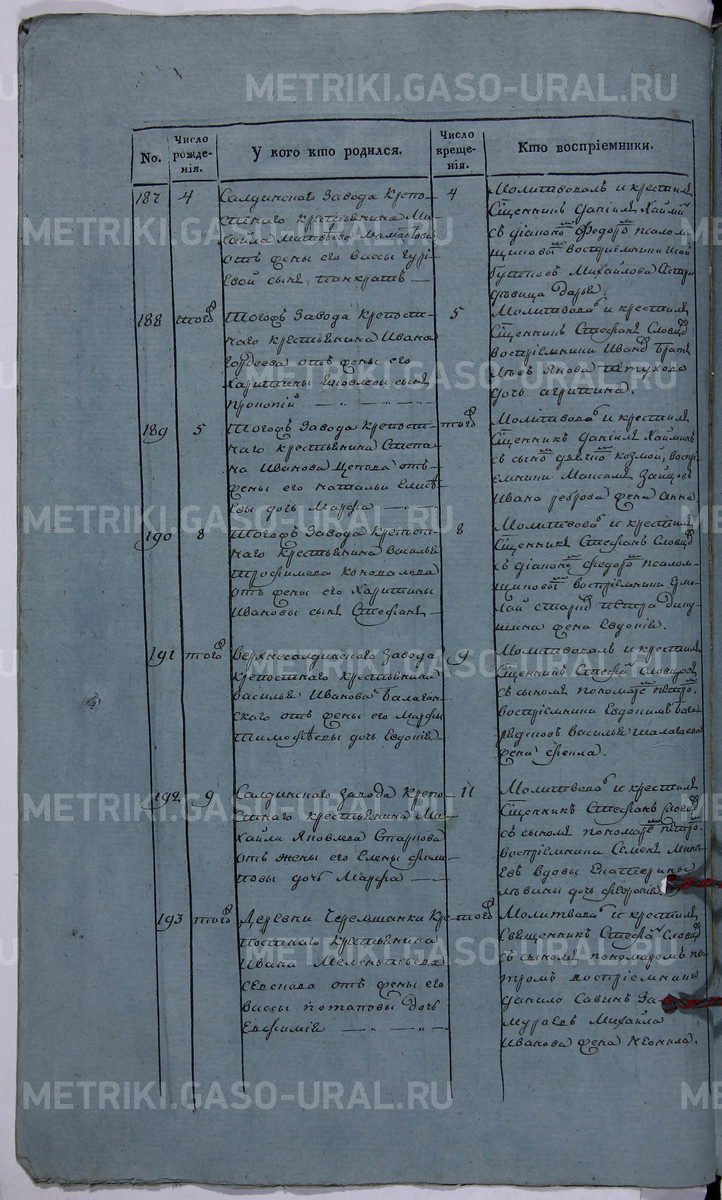 No.
Число рожде-
нія.
У кого кто родился.
Число креще-
нія.
Кто воспріемники.
187
4
Салдинскаго Завода Крепо-
стнаго крестьянина Ми-
хайла Матвѣева
отъ жены его Вассы Гурі-
евой сынъ Панкратъ
4
Молитвовалъ и крестилъ
Сщенникъ Даніилъ
съ діакономъ Федоромъ псалом-
щиковымъ воспріемники
Михайлова
дѣвица Дарья.
188
того
Тогожъ Завода крепост-
наго крестьянина Ивана
Гордеева отъ жены его
Харитины сынъ
Прокопій
5
Молитвовалъ и крестилъ
Сщенникъ Стефанъ Словцовъ
воспріемники Иванъ
Петухова
дочь Агрипина.
189
5
Тогожъ Завода крепост-
наго крестьянина Степа-
на Иванова отъ
жены его Натальи Елисѣ-
евы дочь Марфа
того
Молитвовалъ и крестилъ
Сщенникъ Даніилъ
съ сыномъ дьячкомъ Козмой, воспрі-
емники Максимъ Зайцовъ
Ивана Реброва жена Анна
190
8
Тогожъ Завода крепост-
наго крестьянина Василья
Трофимова Коновалова
отъ жены его Харитины
Ивановы сынъ Стефанъ
8
Молитвовалъ и крестилъ
Сщенникъ Стефанъ Словцовъ
съ діакономъ Федоромъ псалом-
щиковымъ воспріемники Ерм-
лай Петра
жена Евдокія.
191
того
Верхнесалдинскаго Завода
крепостнаго крестьянина
Василья Иванова Балакин-
скаго отъ жены его Марфы
Тимофѣевы дочь Евдокія
9
Молитвовалъ и крестилъ
Сщенникъ Стефанъ Словцовъ
съ сыномъ пономаремъ Петромъ.
воспріемники Евдокимъ
Василья
жена Фекла.
192
9
Салдинскаго Завода крепо-
стнаго крестьянина Ми-
хайла Яковлева Старкова
отъ жены его Елены Фили-
повы дочь Марфа
11
Молитвовалъ и крестилъ
Сщенникъ Стефанъ Словцовъ
съ сыномъ пономаремъ Петромъ.
воспріемники Семенъ
вдовы Екатерины
дочь
193
того
Деревни Черемшанки кре-
постнаго крестьянина
Ивана Мелентьева
отъ жены его
Вассы Потаповы дочь
Евфимія
того
Молитвовалъ и крестилъ
Священникъ Стефанъ Словцовъ
съ сыномъ пономаремъ Пе-
тромъ воспріемники
Данило Савинъ За-
мураевъ Михайла
Иванова жена Неонила.
METRIKI.GASO-URAL.RU
METRIKI.GASO-URAL.RU
METRIKI.GASO-URAL.RU
METRIKI.GASO-URAL.RU
METRIKI.GASO-URAL.RU
METRIKI.GASO-URAL.RU
METRIKI.GASO-URAL.RU
METRIKI.GASO-URAL.RU